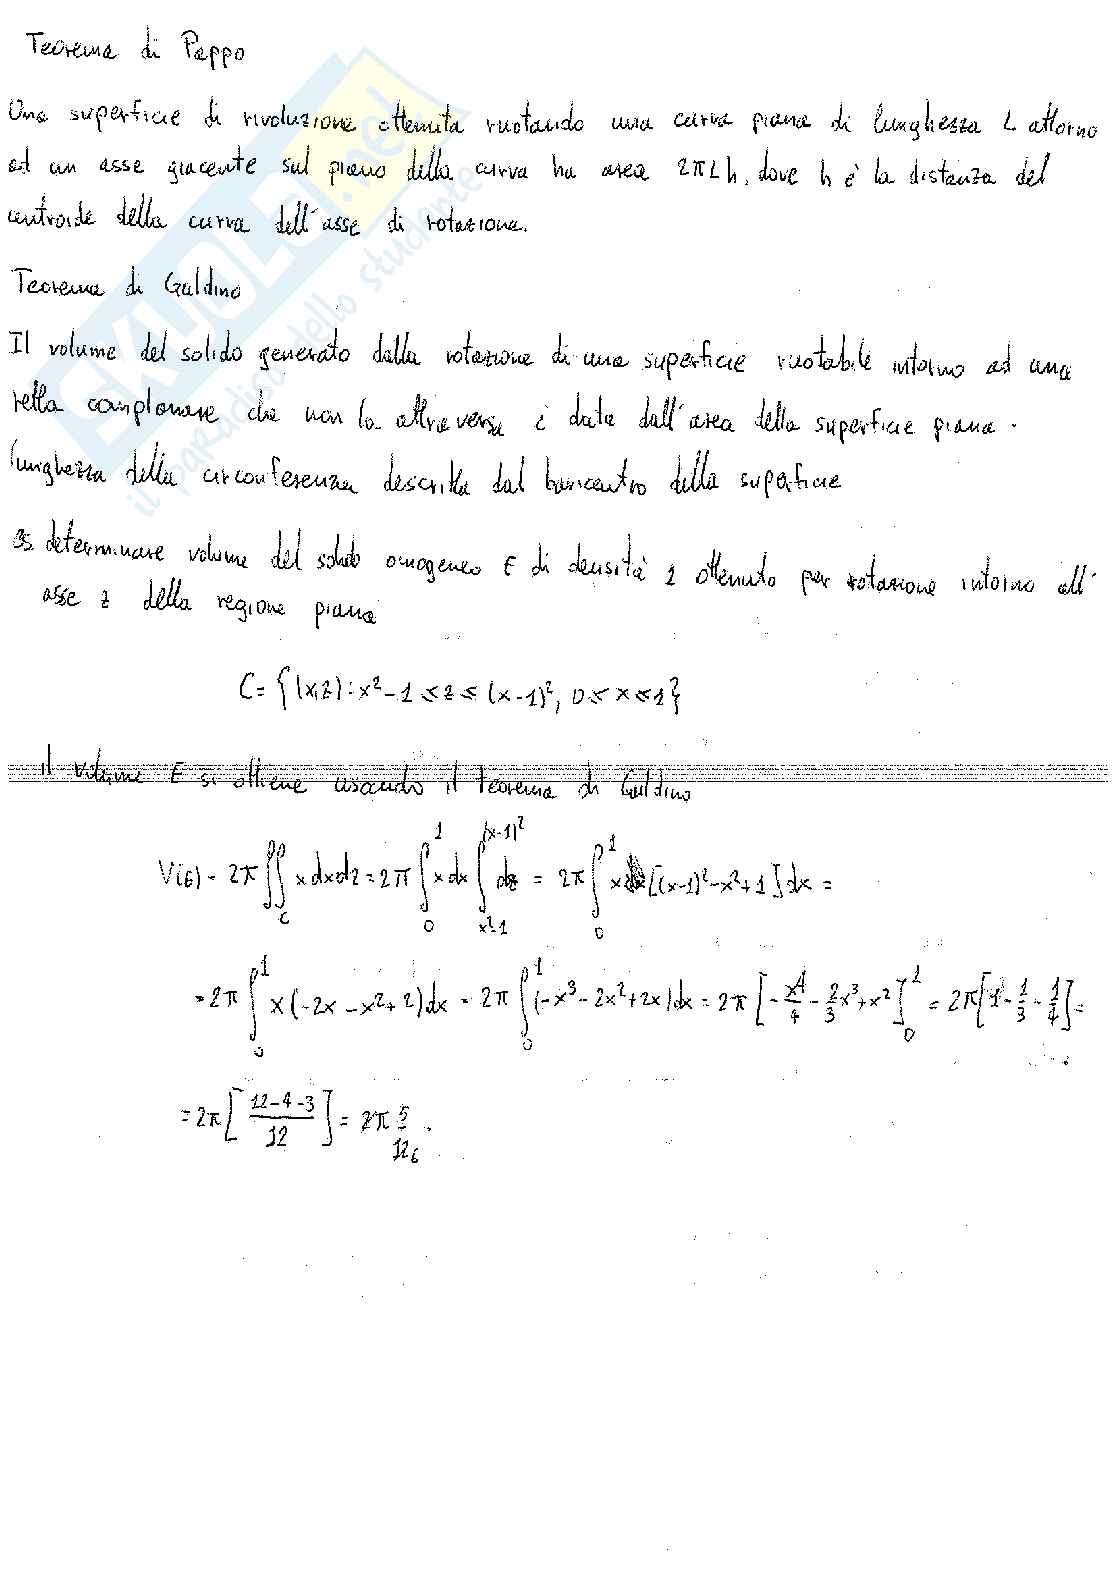 Teorema di Pappo
Una superficie di rivoluzione ottenuta ruotando una curva piana di lunghezza L attorno
ad un asse giacente sul piano della curva ha area 2πLh, dove h è la distanza del
centroide della curva dell'asse di rotazione.
Teorema di Guldino
Il volume del solido generato dalla rotazione di una superficie ruotabile intorno ad una
retta complanare che non la attraversa è data dall'area della superficie piana ·
lunghezza della circonferenza descritta dal baricentro della superficie
es. determinare volume del solido omogeneo E di densità 1 ottenuto per rotazione intorno all'
asse z della regione piana
C = {(x,z) : x² - 1 ≤ z ≤ (x-1)², 0 ≤ x ≤ 1}
il volume E si ottiene usando il teorema di Guldino
V(E) = 2π ∬_C x dx dz = 2π ∫_0^1 x dx ∫_{x²-1}^{(x-1)²} dz = 2π ∫_0^1 x [(x-1)² - x² + 1] dx =
= 2π ∫_0^1 x (-2x - x² + 2) dx = 2π ∫_0^1 (-x³ - 2x² + 2x) dx = 2π [-x⁴/4 - 2/3 x³ + x²]_0^1 = 2π [1 - 1/3 - 1/4] =
= 2π [(12-4-3)/12] = 2π 5/12 6 .
SKUOLA.net
il paradiso dello studente